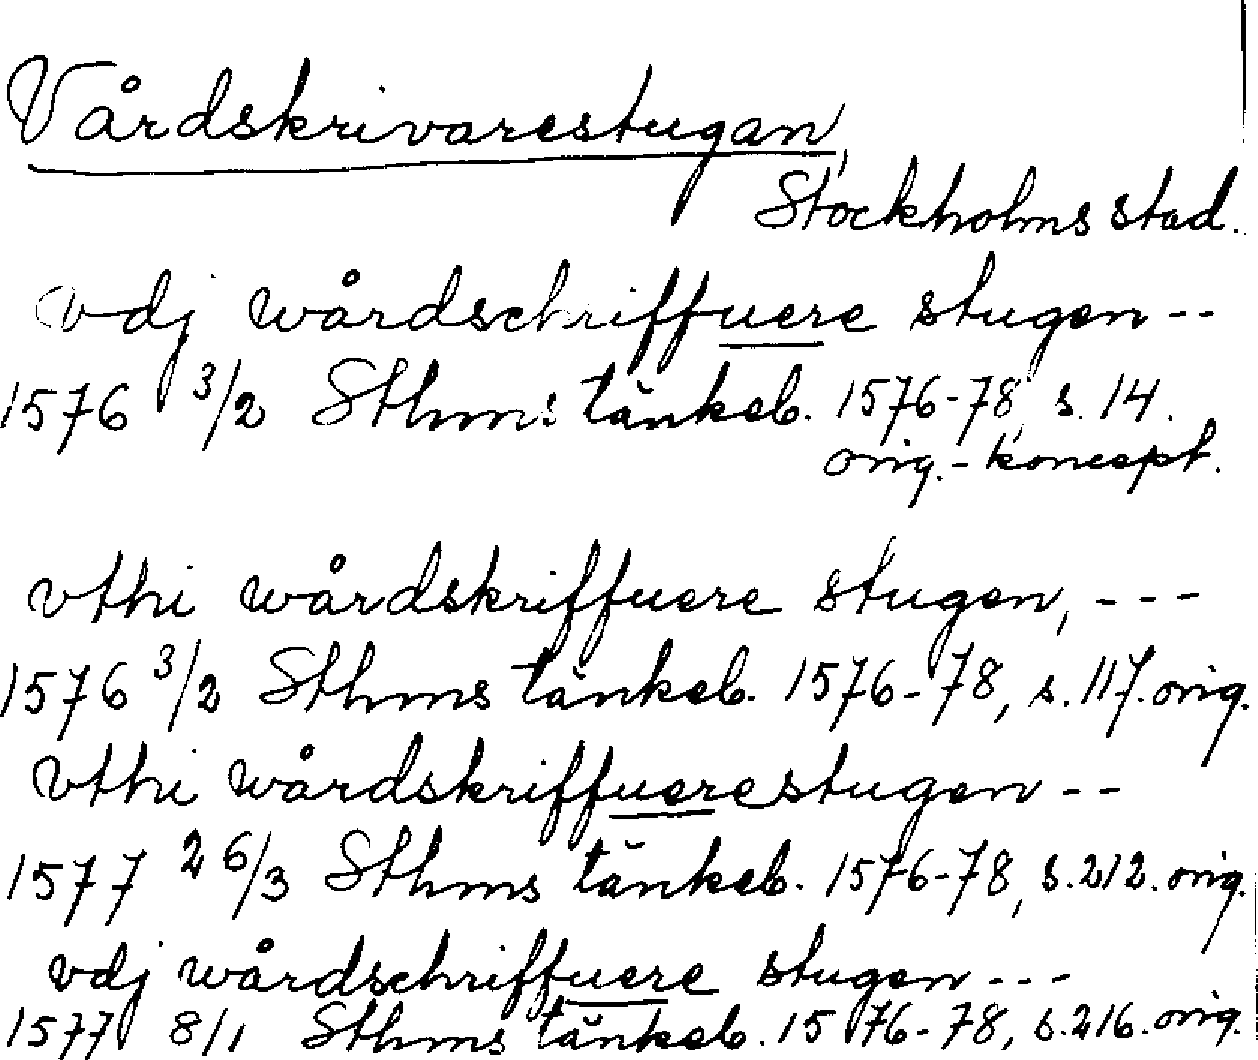 Vårdskrivarestugan,
Stockholms stad.
vdj wårdschriffuere stugen--
1576 3/2 Sthms tänkeb. 1576-78, s. 14.
orig.-koncept.
vthi wårdskriffuere stugen, ---
1576 3/2 Sthms tänkeb. 1576-78, s. 117. orig.
vthi wårdskriffuerestugen--
1577 26/3 Sthms tänkeb. 1576-78, s. 212. orig.
vdj wårdschriffuere stugen---
1577 8/1 Sthms tänkeb. 1576-78, s. 216. orig.